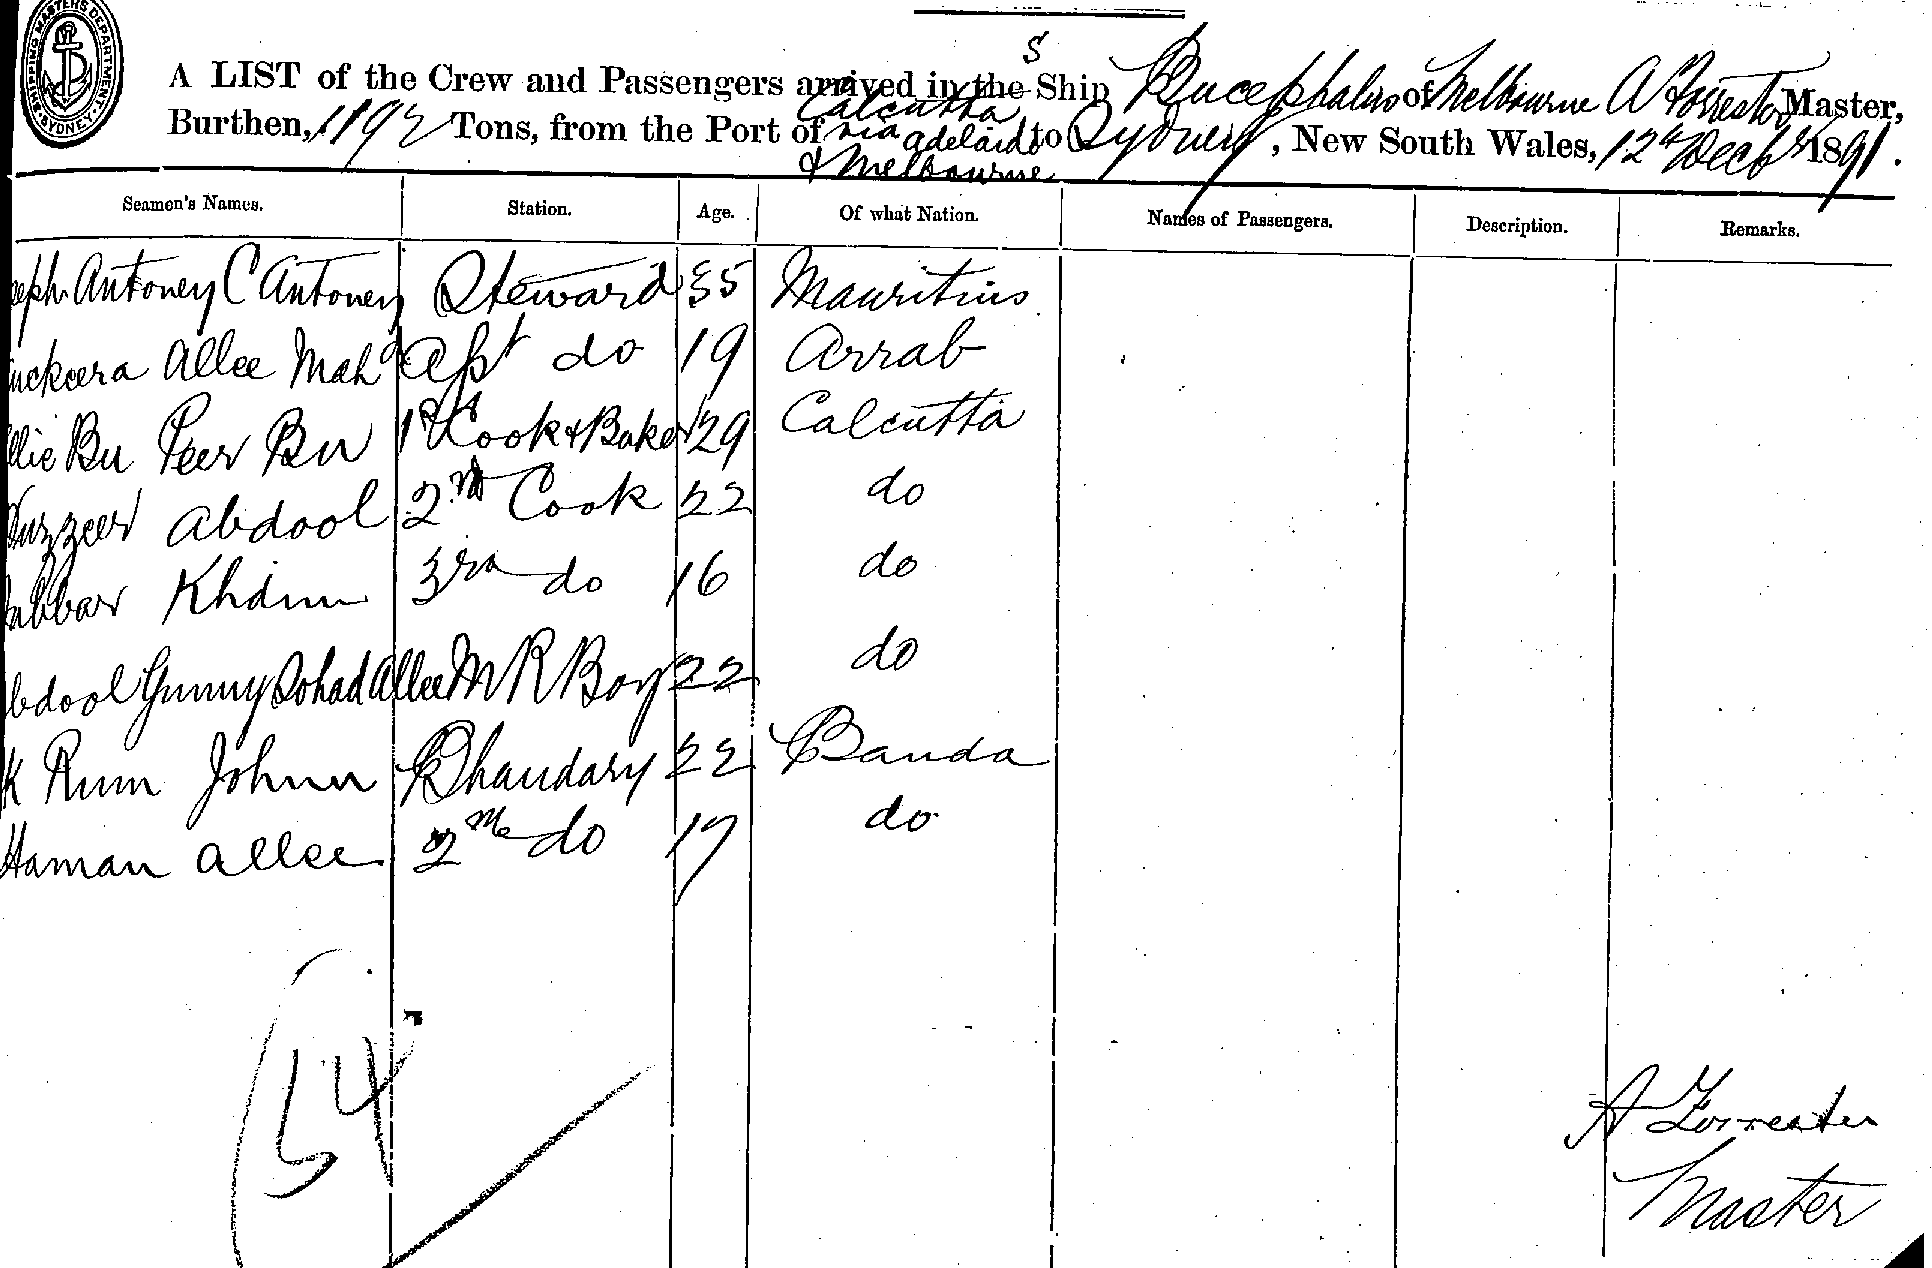 SHIPPING MASTERS DEPARTMENT. SYDNEY.
S
A LIST of the Crew and Passengers arrived in the Ship Bucephalus of Melbourne A Forrester Master,
Burthen, 1192 Tons, from the Port of Calcutta via Adelaide & Melbourne to Sydney, New South Wales, 12th Decbr 1891.
Seamen's Names. Station. Age. Of what Nation. Names of Passengers. Description. Remarks.
eph Antoney C Antoney Steward 35 Mauritius
uckeera Allee Mahd Asst do 19 Arrab
llie Bu Peer Bu 1st Cook & Baker 29 Calcutta
uzzeer Abdool 2nd Cook 22 do
abbar 3rd do 16 do
bdool Gunny Sohad Allee M R Boy 22 do
k Rum Johnu Bhandary 22 Banda
Haman Allee 2nd do 17 do
54
A Forrester
Master